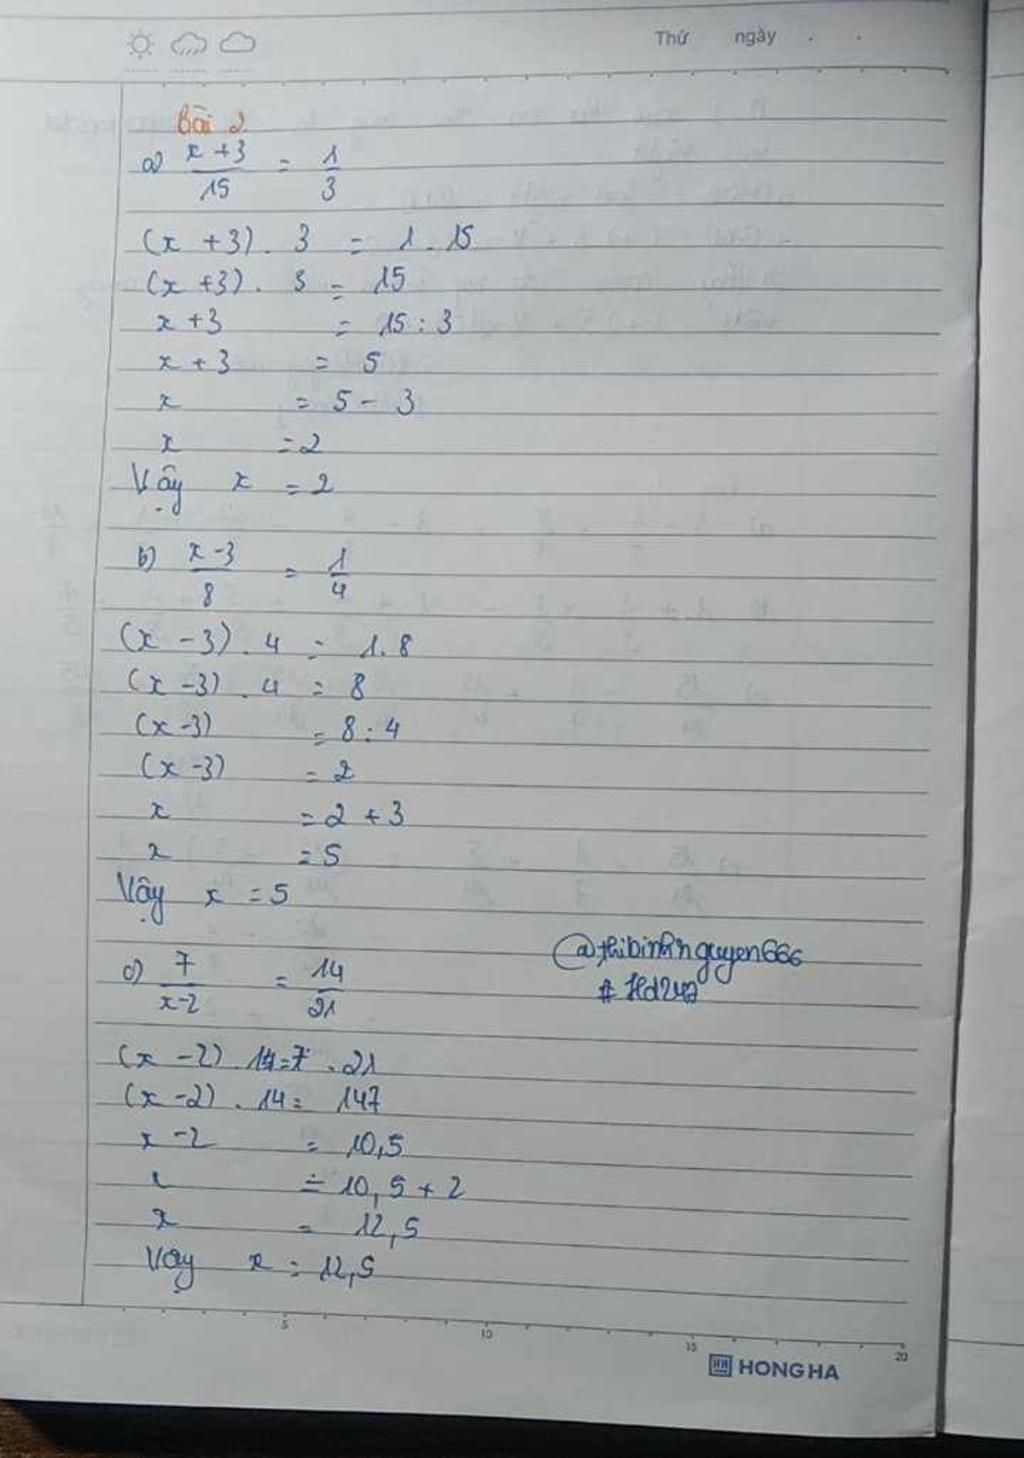 Thứ ngày . .
Bài 2
a) x + 3 / 15 = 1 / 3
(x + 3) . 3 = 1 . 15
(x + 3) . 3 = 15
x + 3 = 15 : 3
x + 3 = 5
x = 5 - 3
x = 2
Vậy x = 2
b) x - 3 / 8 = 1 / 4
(x - 3) . 4 = 1 . 8
(x - 3) . 4 = 8
(x - 3) = 8 : 4
(x - 3) = 2
x = 2 + 3
x = 5
Vậy x = 5
@thibinhnguyen666
# Hd247
c) 7 / x - 2 = 14 / 21
(x - 2) . 14 = 7 . 21
(x - 2) . 14 = 147
x - 2 = 10,5
x = 10,5 + 2
x = 12,5
Vậy x = 12,5
5 10 15 20
HONG HA